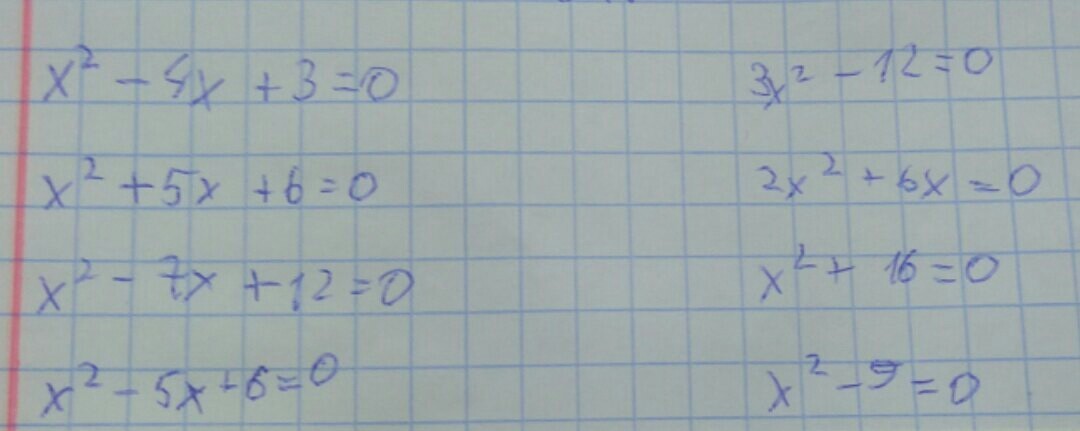 x² - 4x + 3 = 0
x² + 5x + 6 = 0
x² - 7x + 12 = 0
x² - 5x + 6 = 0
3x² - 12 = 0
2x² + 6x = 0
x² + 16 = 0
x² - 9 = 0